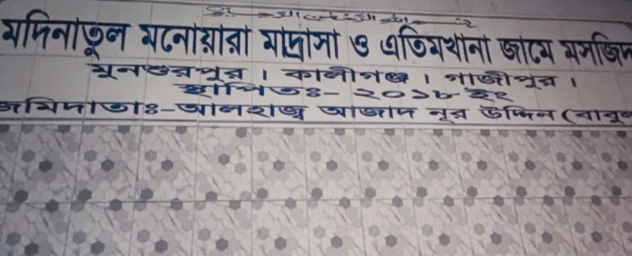 মদিনাতুল মনোয়ারা মাদ্রাসা ও এতিমখানা জামে মসজিদ
মুনশুরপুর । কালীগঞ্জ । গাজীপুর ।
স্থাপিতঃ- ২০১৮ ইং
জমিদাতাঃ-আলহাজ্ব আজাদ নূর উদ্দিন (বাবুল